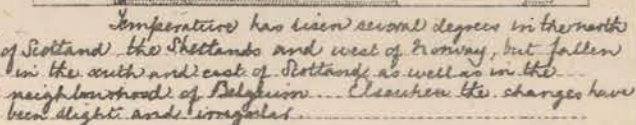 Temperature has risen several degrees in the north
of Scotland the Shetlands and west of Norway, but fallen
in the south and east of Scotland, as well as in the
neighbourhood of Belgium. Elsewhere the changes have
been slight and irregular.